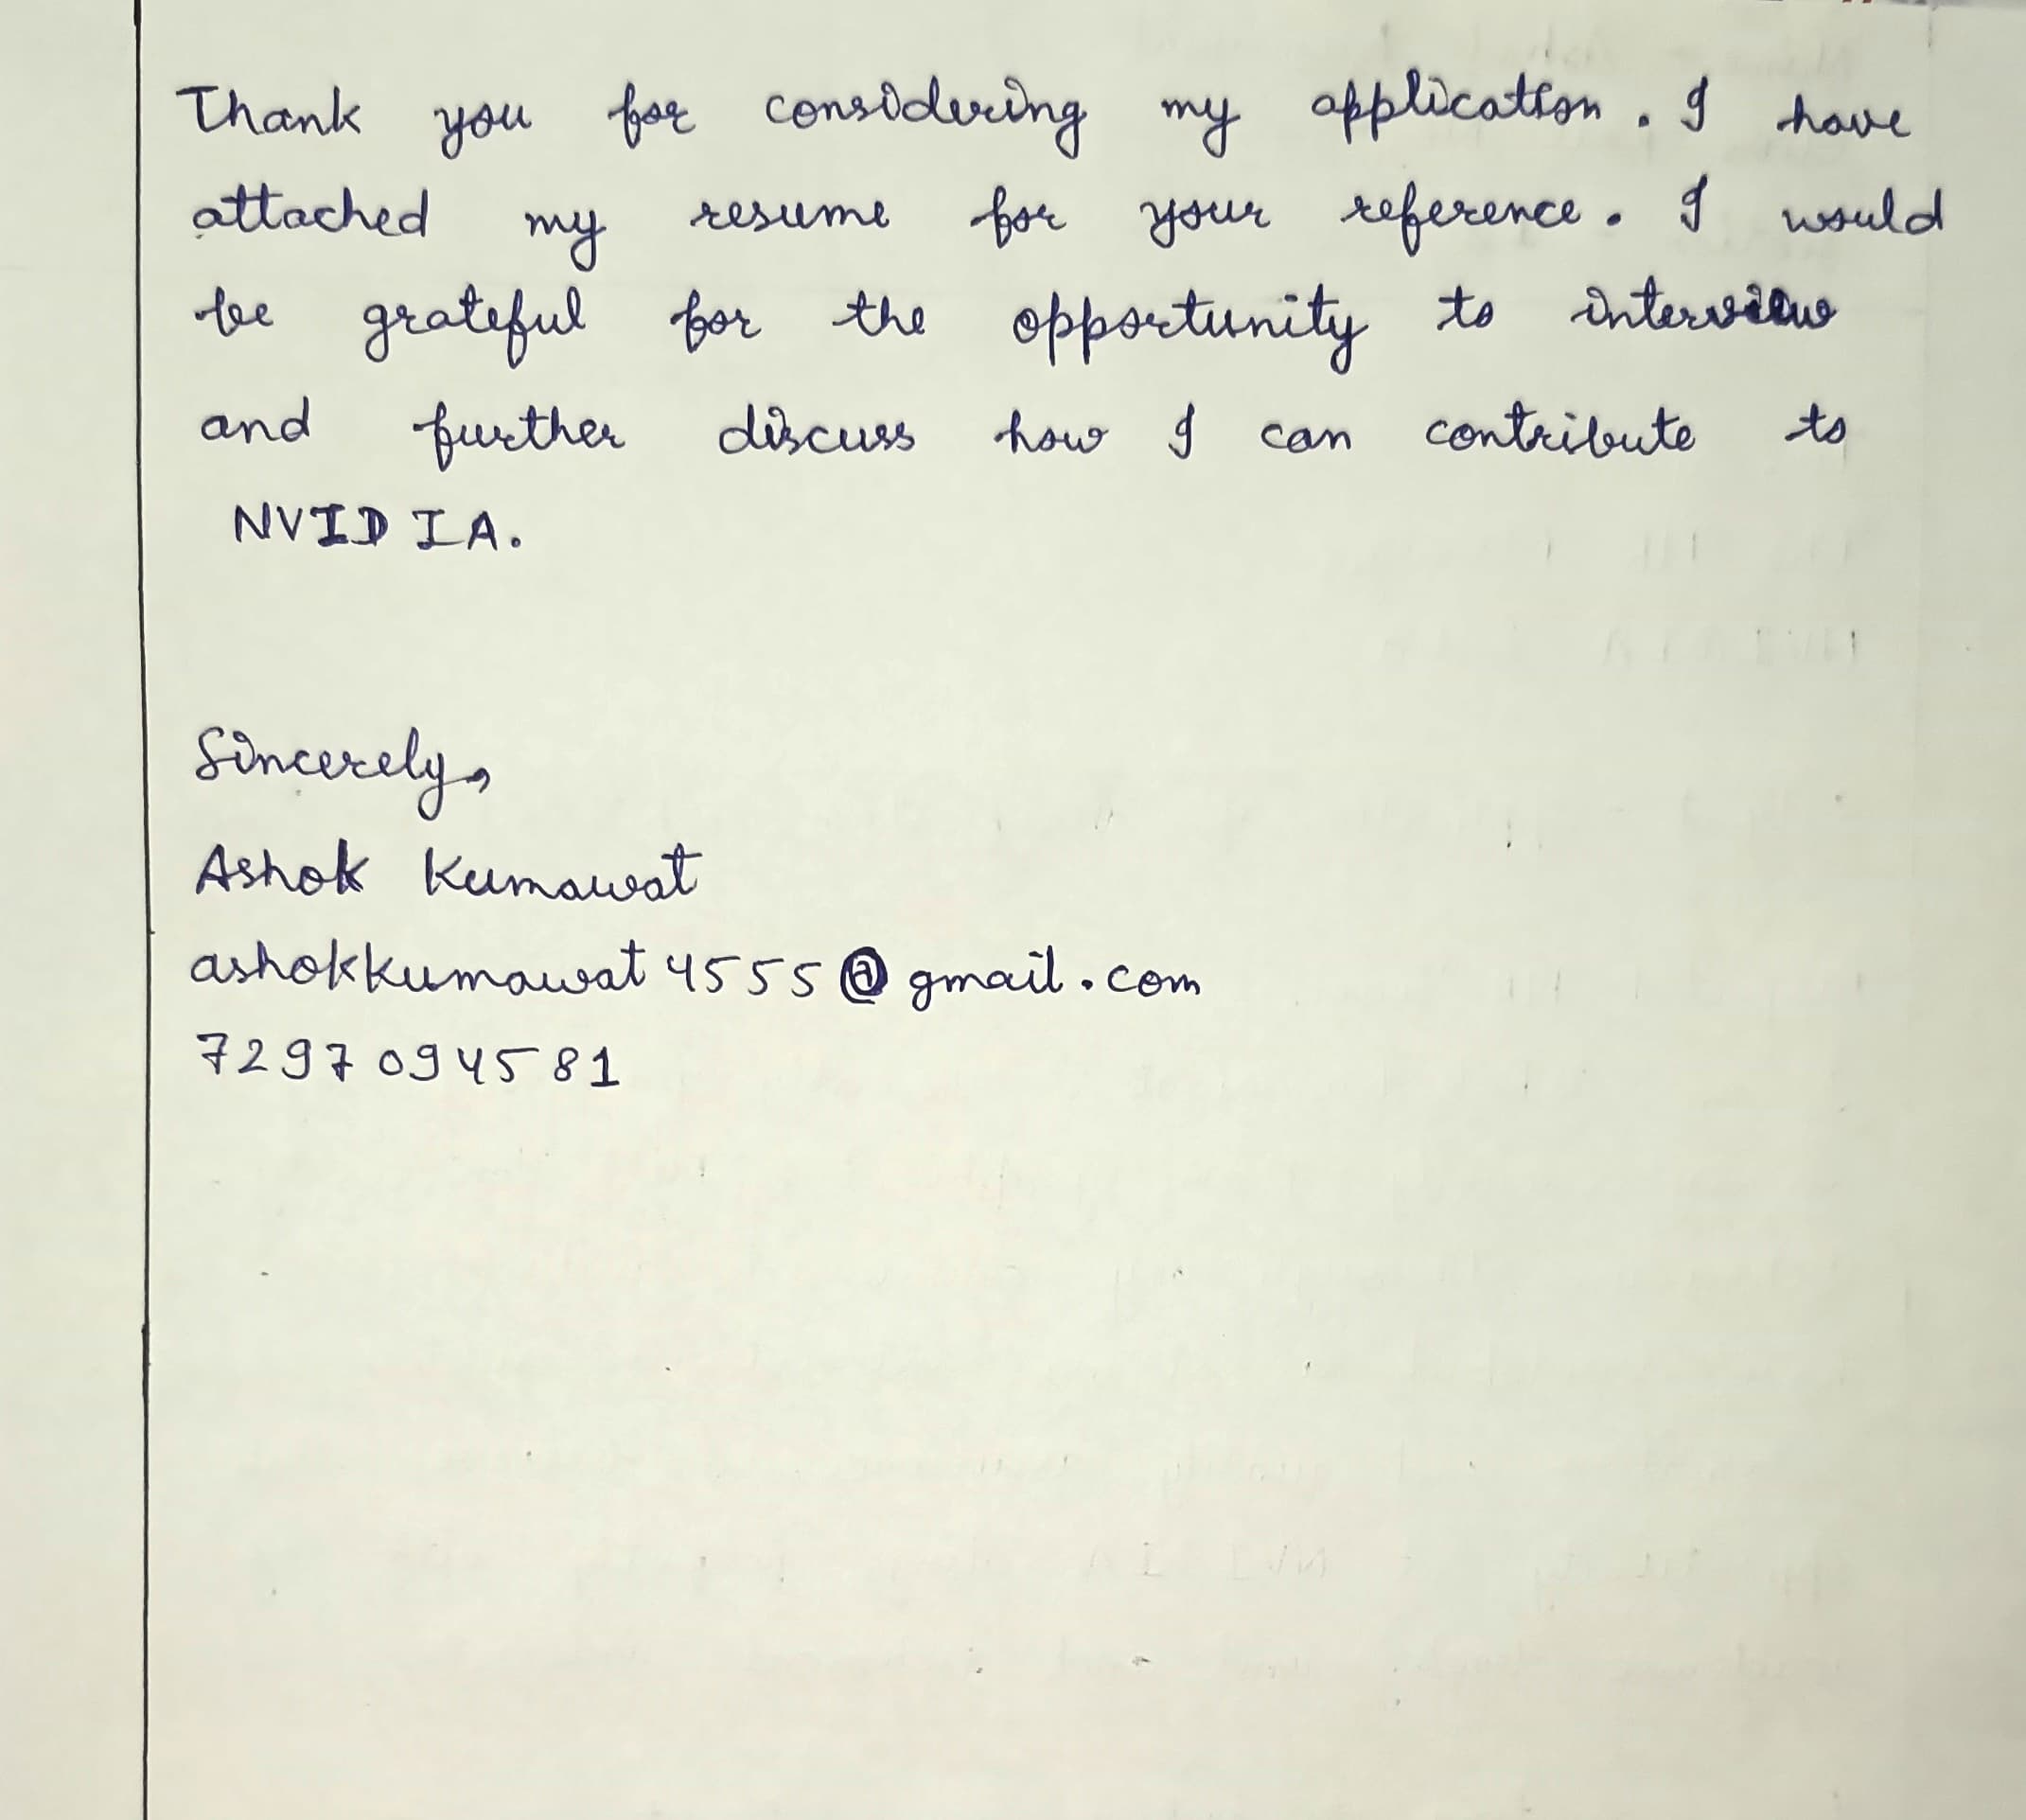 Thank you for considering my application. I have
attached my resume for your reference. I would
be grateful for the opportunity to interview
and further discuss how I can contribute to
NVIDIA.
Sincerely,
Ashok Kumawat
ashokkumawat4555@gmail.com
7297094581